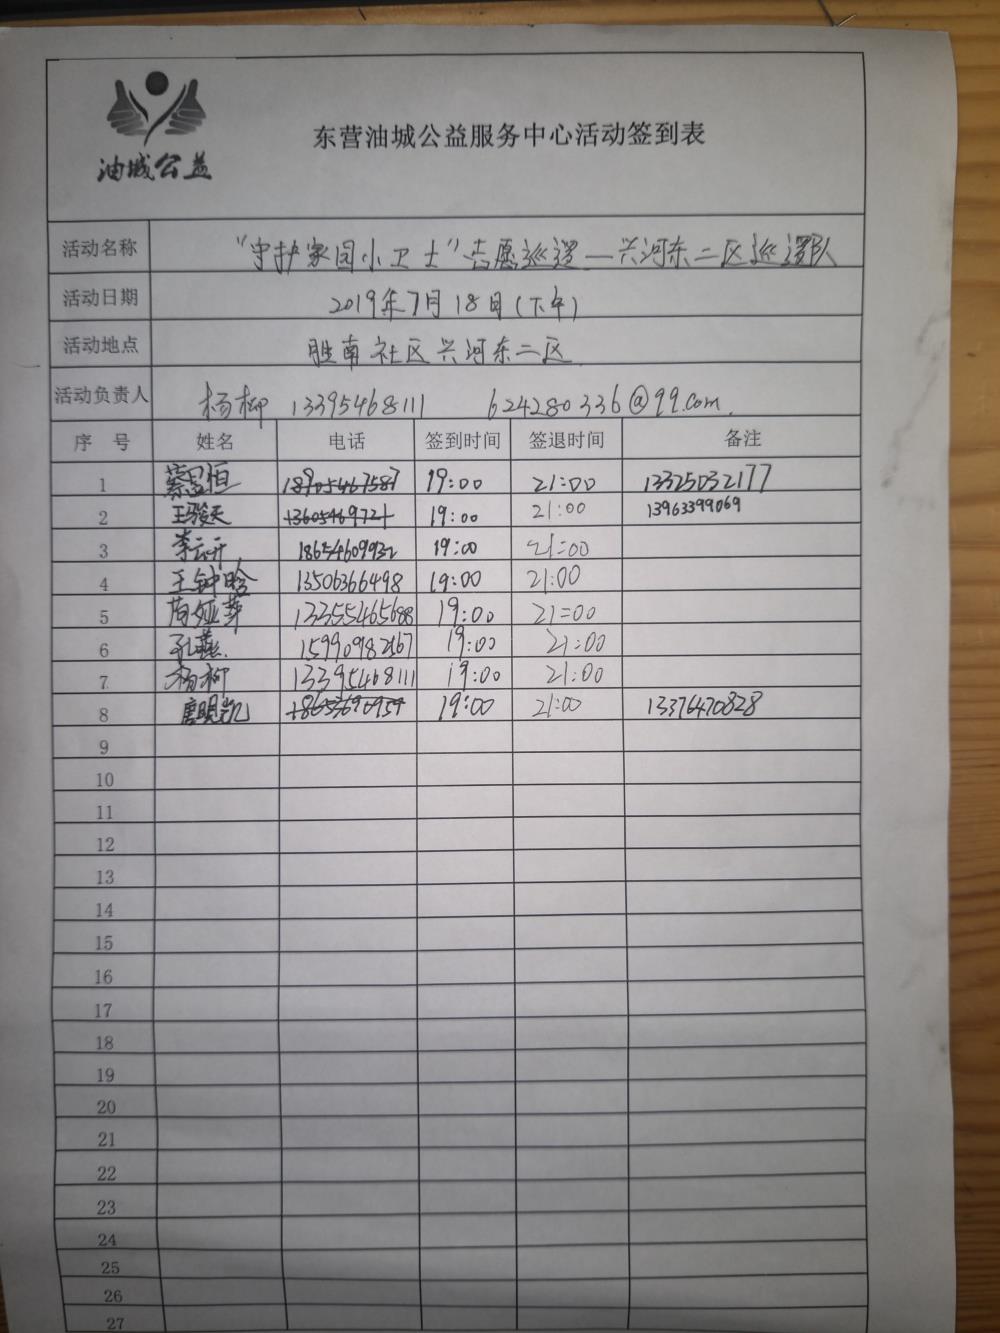 油城公益
东营油城公益服务中心活动签到表
活动名称 “守护家园小卫士”志愿巡逻—兴河东二区巡逻队
活动日期 2019年7月18日(下午)
活动地点 胜南社区兴河东二区
活动负责人 杨柳 13395468111 624280336@qq.com.
序 号 姓名 电话 签到时间 签退时间 备注
1 蔡昱恒 18905467587 19:00 21:00 13325032177
2 王骏天 19:00 21:00 13963399069
3 李云开 18654609932 19:00 21:00
4 王钟晗 13506366498 19:00 21:00
5 13355465688 19:00 21:00
6 孔燕. 15990982567 19:00 21:00
7 杨柳 13395468111 19:00 21:00
8 唐明凯 19:00 21:00 13376470828
9
10
11
12
13
14
15
16
17
18
19
20
21
22
23
24
25
26
27